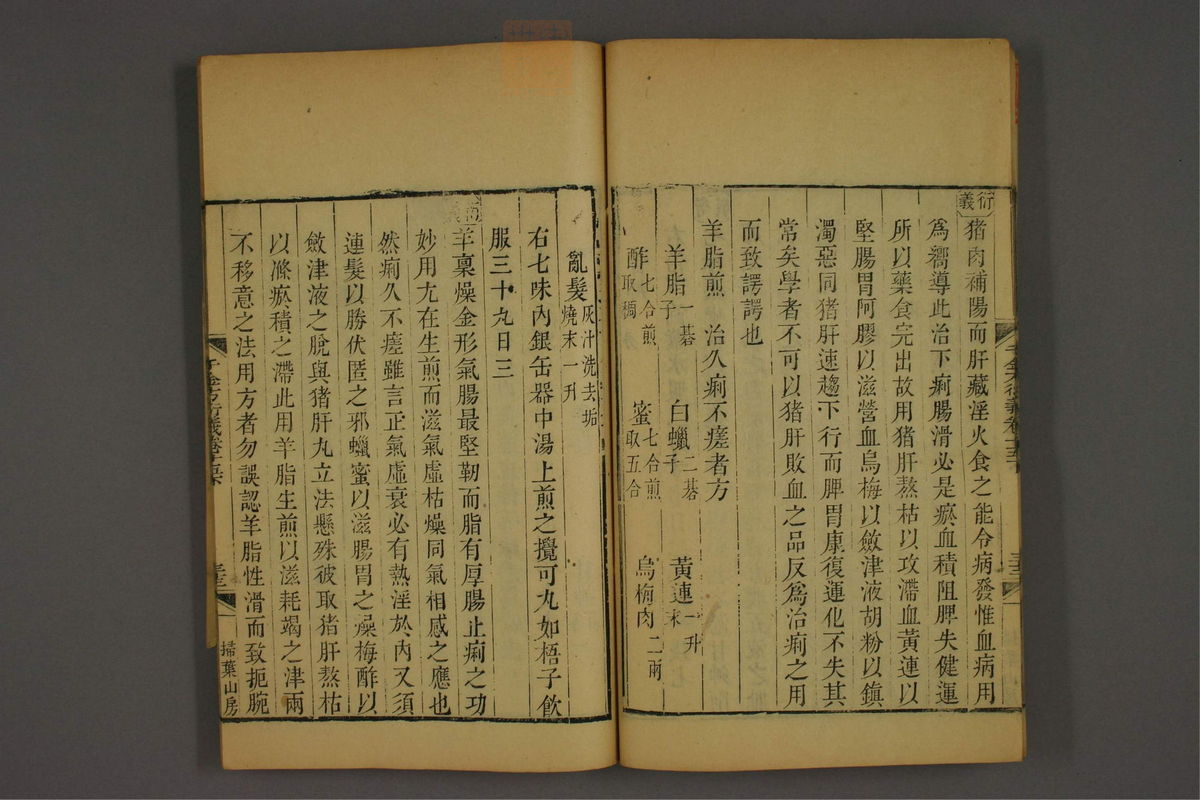 衍義
猪肉補陽而肝藏淫火食之能令病發惟血病用
爲嚮導此治下痢腸滑必是瘀血積阻脾失健運
所以藥食完出故用猪肝熬枯以攻滯血黃連以
堅腸胃阿膠以滋營血烏梅以斂津液胡粉以鎮
濁惡同猪肝速趨下行而脾胃康復運化不失其
常矣學者不可以猪肝敗血之品反爲治痢之用
而致諤諤也
羊脂煎　治久痢不瘥者方
羊脂一碁子　白蠟二碁子　黃連末一升
酢七合煎取稠　蜜七合煎取五合　烏梅肉二兩
亂髮灰汁洗去垢燒末一升
右七味內銀缶器中湯上煎之攪可丸如梧子飲
服三十九日三
羊稟燥金形氣腸最堅韌而脂有厚腸止痢之功
妙用尢在生煎而滋氣虛枯燥同氣相感之應也
然痢久不瘥雖言正氣虛衰必有熱淫於內又須
連髮以勝伏匿之邪蠟蜜以滋腸胃之燥梅酢以
斂津液之脫與猪肝丸立法懸殊彼取猪肝熬枯
以滌瘀積之滯此用羊脂生煎以滋耗竭之津兩
不移意之法用方者勿誤認羊脂性滑而致扼腕
掃葉山房